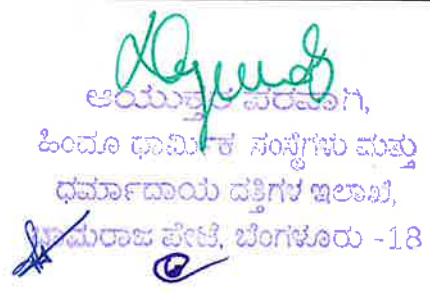 ಆಯುಕ್ತರ ಪರವಾಗಿ,
ಹಿಂದೂ ಧಾರ್ಮಿಕ ಸಂಸ್ಥೆಗಳು ಮತ್ತು
ಧರ್ಮಾದಾಯ ದತ್ತಿಗಳ ಇಲಾಖೆ,
ಚಾಮರಾಜ ಪೇಟೆ, ಬೆಂಗಳೂರು -18